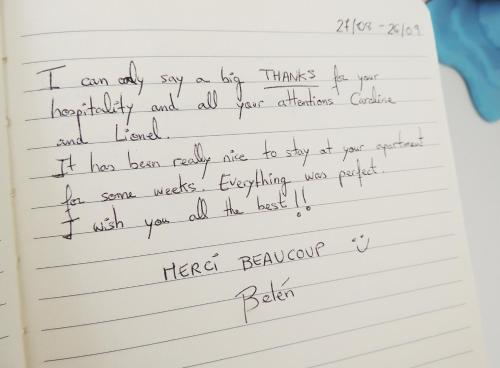 27/08 - 26/09
I can only say a big THANKS for your
hospitality and all your attentions Caroline
and Lionel.
It has been really nice to stay at your apartment
for some weeks. Everything was perfect.
I wish you all the best!!
MERCI BEAUCOUP :)
Belén